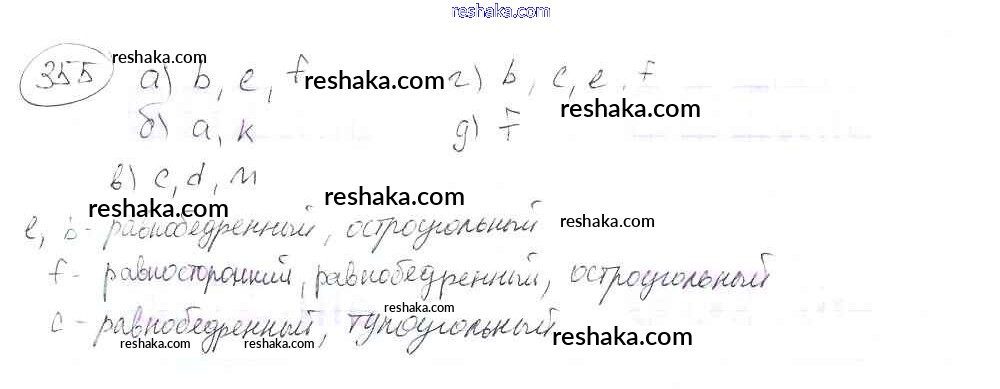 reshaka.com
355 а) b, e, f г) b, c, e, f
reshaka.com reshaka.com reshaka.com
б) a, к д) f
в) c, d, м
reshaka.com reshaka.com reshaka.com
e, b - равнобедренный, остроугольный
f - равносторонний, равнобедренный, остроугольный
reshaka.com
c - равнобедренный, тупоугольный
reshaka.com reshaka.com reshaka.com